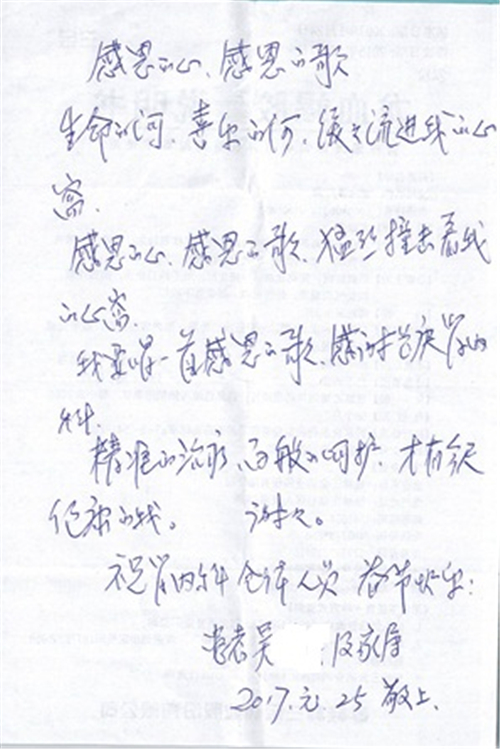 感恩的心、感恩的歌
生命的河、喜乐的河、缓缓流进我的心
窝.
感恩的心、感恩的歌、猛然撞击着我
的心窝
我要唱一首感恩的歌、感谢肾内
科.
精准的治疗、的呵护 才有今天
健康的我。 谢谢。
祝肾内科全体人员 春节快乐:
患者吴 及家属
2017.元.25 敬上.